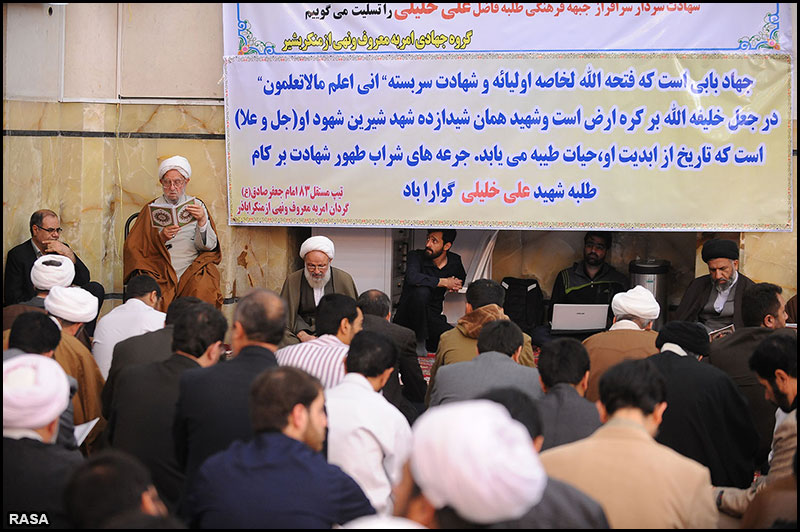 شهادت سردار سرافراز جبهه فرهنگی طلبه فاضل علی خلیلی را تسلیت می گوییم
گروه جهادی امربه معروف ونهی ازمنکربشیر
جهاد بابی است که فتحه الله لخاصه اولیائه و شهادت سربسته" انی اعلم مالاتعلمون"
در جعل خلیفه الله بر کره ارض است وشهید همان شیدازده شهد شیرین شهود او(جل و علا)
است که تاریخ از ابدیت او،حیات طیبه می یابد. جرعه های شراب طهور شهادت بر کام
طلبه شهید علی خلیلی گوارا باد
تیپ مستقل۸۳ امام جعفرصادق(ع)
گردان امربه معروف ونهی ازمنکراباذر
RASA